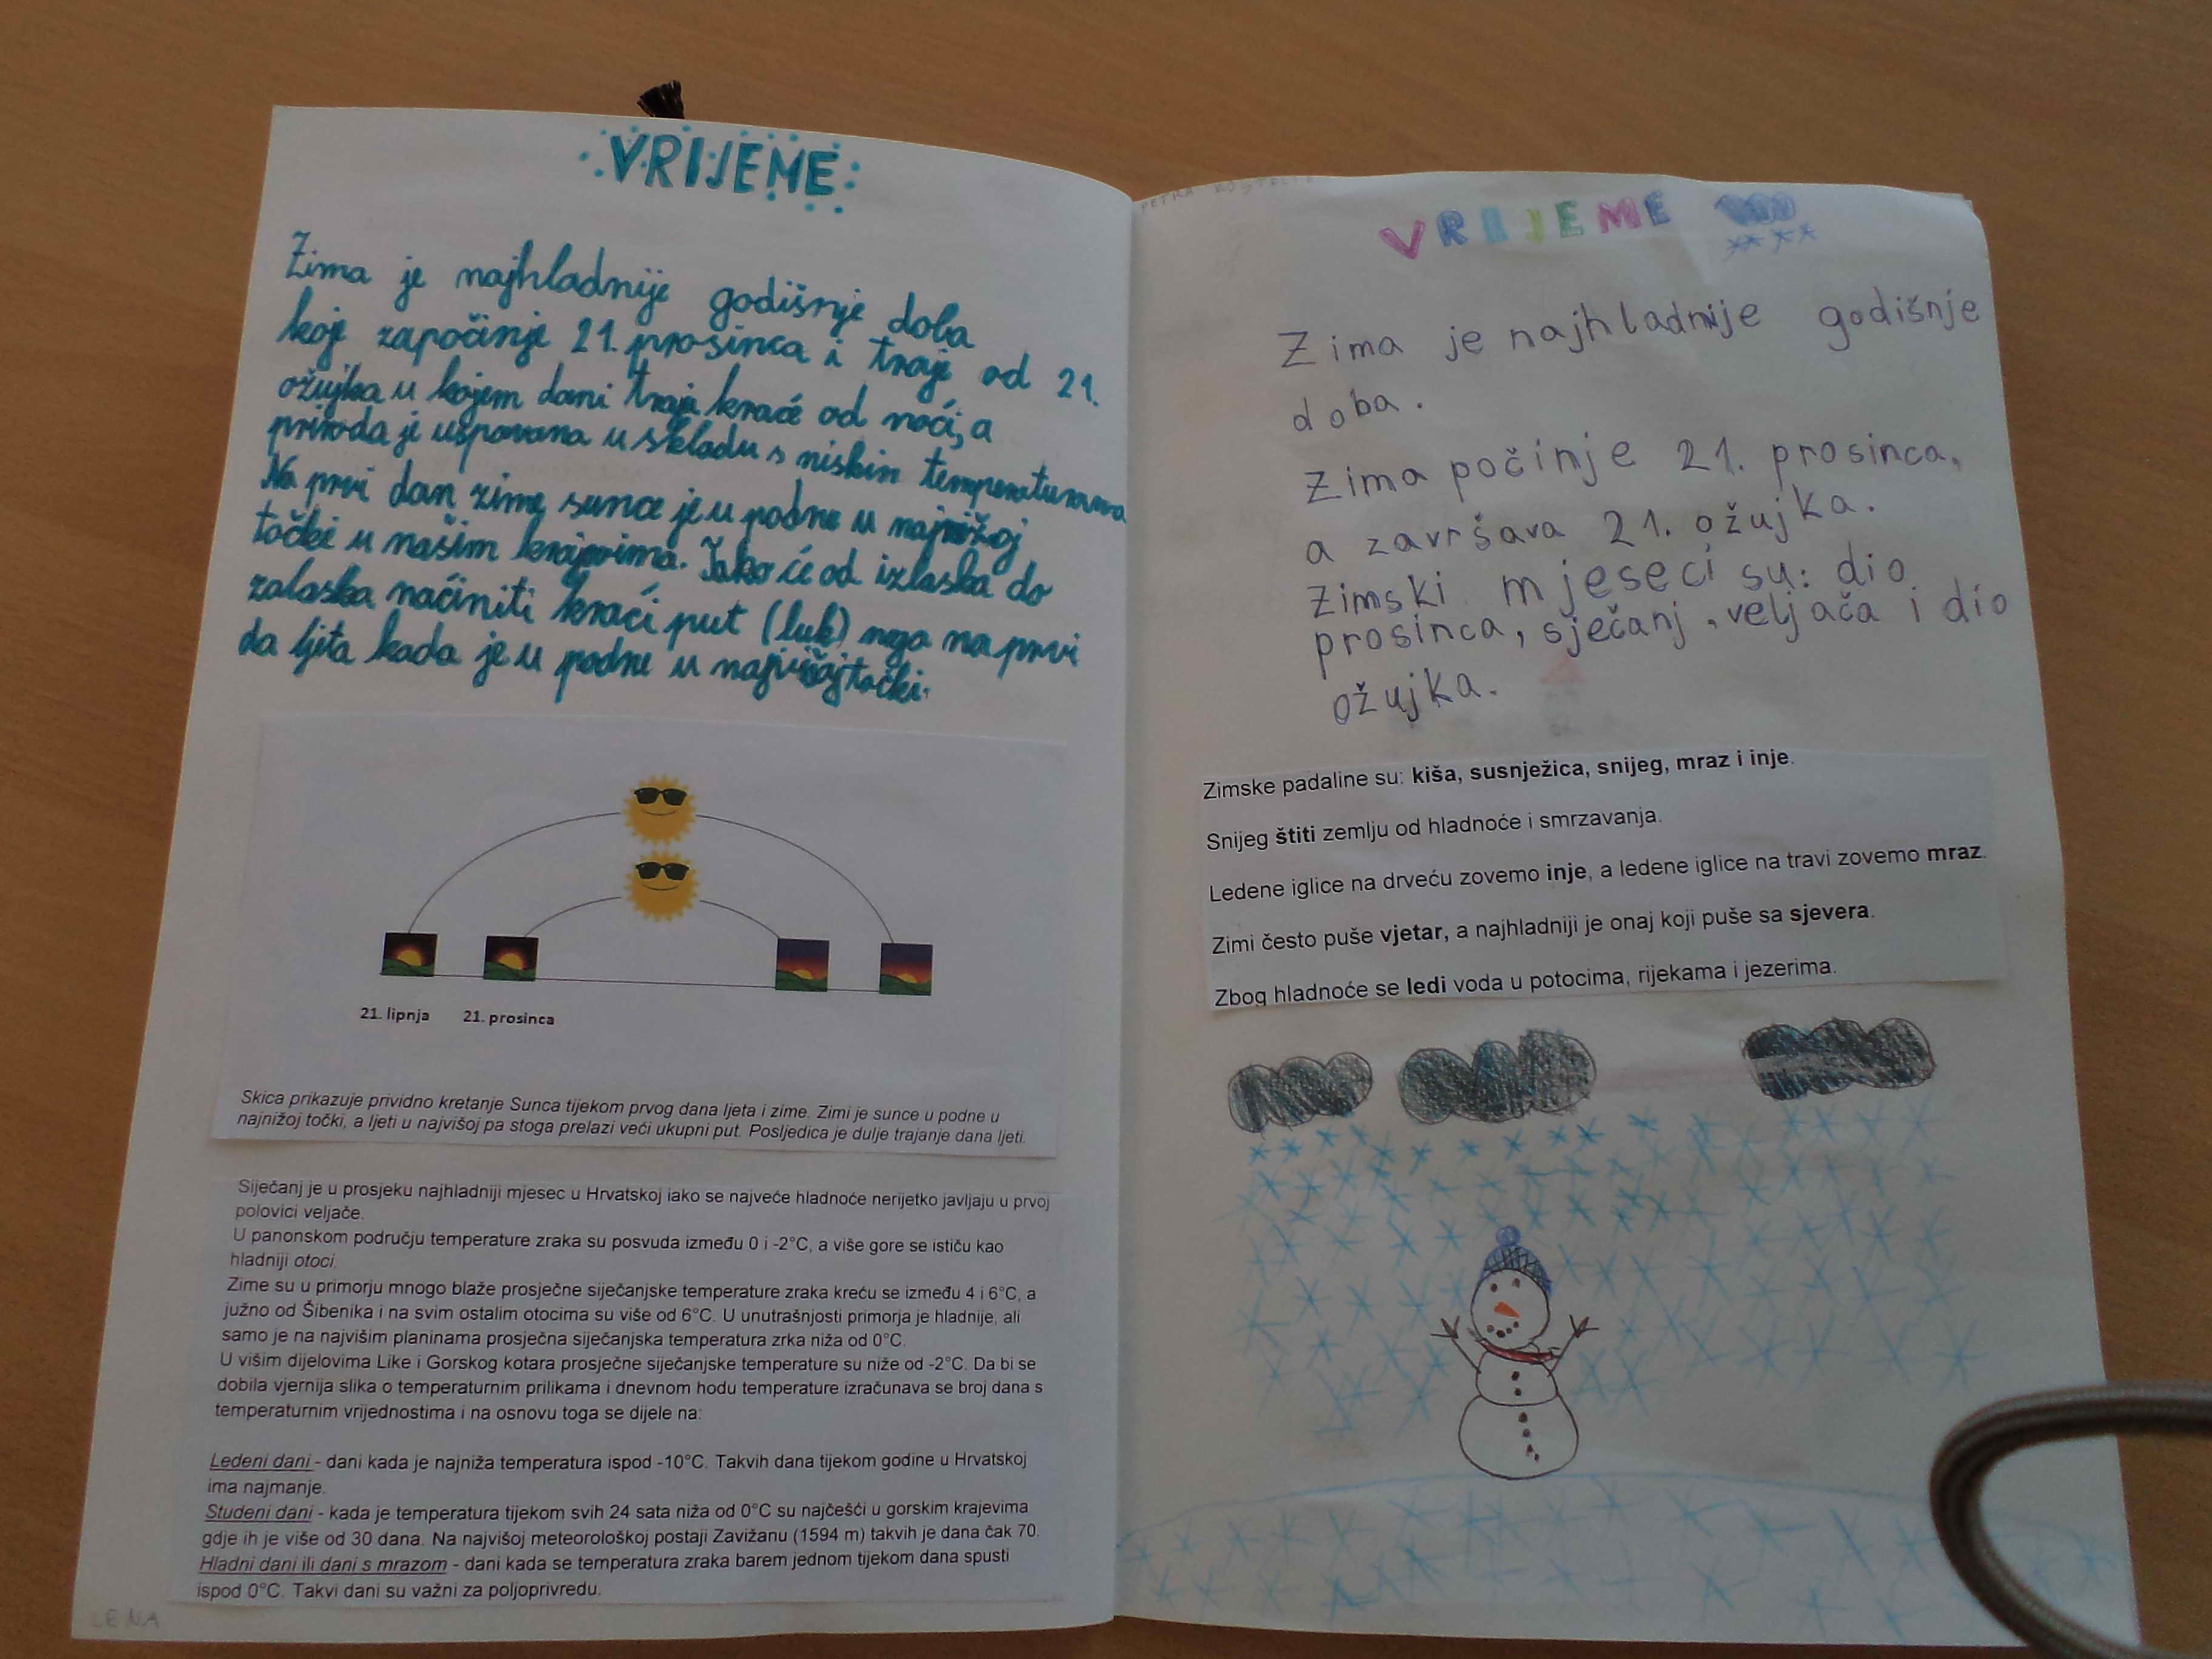 VRIJEME
Zima je najhladnije godišnje doba
koje započinje 21. prosinca i traje od 21.
ožujka u kojem dani traju kraće od noći, a
priroda je uspavana u skladu s niskim temperaturama
Na prvi dan zime sunce je u podne u najnižoj
točki u našim krajevima. Tako će od izlaska do
zalaska načiniti kraći put (luk) nego na prvi
da ljeta kada je u podne u najvišoj točki.
21. lipnja 21. prosinca
Skica prikazuje prividno kretanje Sunca tijekom prvog dana ljeta i zime. Zimi je sunce u podne u
najnižoj točki, a ljeti u najvišoj pa stoga prelazi veći ukupni put. Posljedica je dulje trajanje dana ljeti.
Siječanj je u prosjeku najhladniji mjesec u Hrvatskoj iako se najveće hladnoće nerijetko javljaju u prvoj
polovici veljače.
U panonskom području temperature zraka su posvuda između 0 i -2°C, a više gore se ističu kao
hladniji otoci.
Zime su u primorju mnogo blaže prosječne siječanjske temperature zraka kreću se između 4 i 6°C, a
južno od Šibenika i na svim ostalim otocima su više od 6°C. U unutrašnjosti primorja je hladnije, ali
samo je na najvišim planinama prosječna siječanjska temperatura zrka niža od 0°C.
U višim dijelovima Like i Gorskog kotara prosječne siječanjske temperature su niže od -2°C. Da bi se
dobila vjernija slika o temperaturnim prilikama i dnevnom hodu temperature izračunava se broj dana s
temperaturnim vrijednostima i na osnovu toga se dijele na:
Ledeni dani - dani kada je najniža temperatura ispod -10°C. Takvih dana tijekom godine u Hrvatskoj
ima najmanje.
Studeni dani - kada je temperatura tijekom svih 24 sata niža od 0°C su najčešći u gorskim krajevima
gdje ih je više od 30 dana. Na najvišoj meteorološkoj postaji Zavižanu (1594 m) takvih je dana čak 70.
Hladni dani ili dani s mrazom - dani kada se temperatura zraka barem jednom tijekom dana spusti
ispod 0°C. Takvi dani su važni za poljoprivredu.
LENA
PETRA
VRIJEME
Zima je najhladnije godišnje
doba.
Zima počinje 21. prosinca,
a završava 21. ožujka.
Zimski mjeseci su: dio
prosinca, sječanj, veljača i dio
ožujka.
Zimske padaline su: kiša, susnježica, snijeg, mraz i inje.
Snijeg štiti zemlju od hladnoće i smrzavanja.
Ledene iglice na drveću zovemo inje, a ledene iglice na travi zovemo mraz.
Zimi često puše vjetar, a najhladniji je onaj koji puše sa sjevera.
Zbog hladnoće se ledi voda u potocima, rijekama i jezerima.